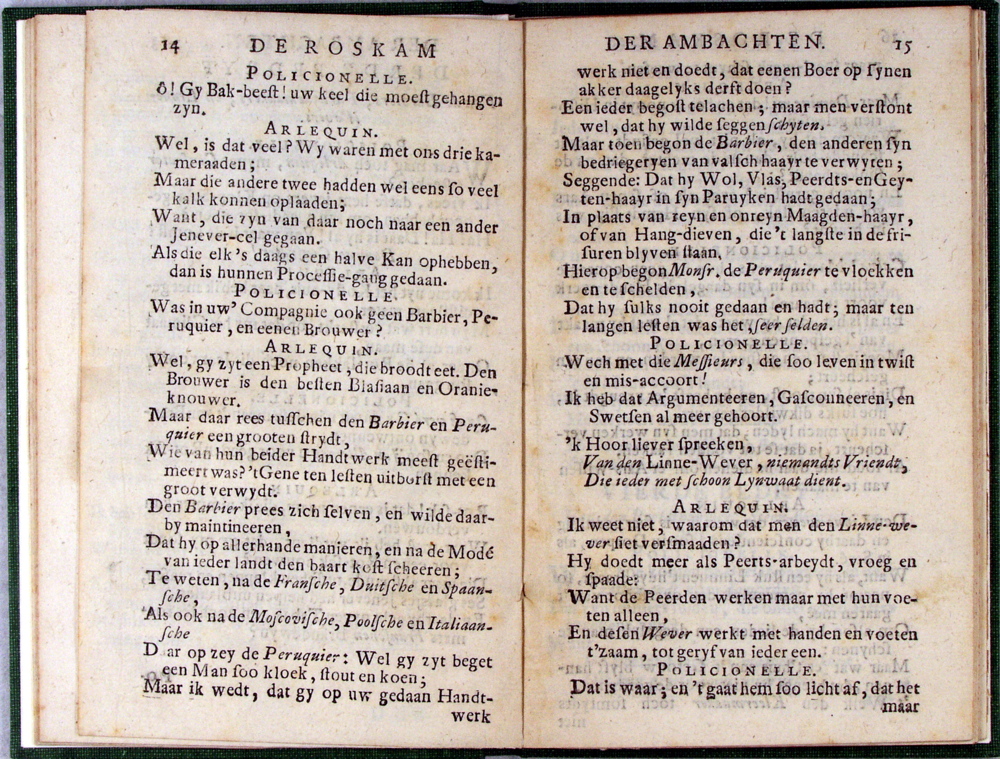 14 DE ROSKAM
POLICIONELLE.
ô! Gy Bak-beeſt! uw keel die moeſt gehangen
zyn.
ARLEQUIN.
Wel, is dat veel? Wy waren met ons drie ka-
meraaden;
Maar die andere twee hadden wel eens ſo veel
kalk konnen oplaaden;
Want, die zyn van daar noch naar een ander
Jenever-cel gegaan.
Als die elk 's daags een halve Kan ophebben,
dan is hunnen Proceſſie-gang gedaan.
POLICIONELLE.
Was in uw' Compagnie ook geen Barbier, Pe-
ruquier, en eenen Brouwer?
ARLEQUIN.
Wel, gy zyt een Propheet, die broodt eet. Den
Brouwer is den beſten Blaſiaan en Oranie-
knouwer.
Maar daar rees tuſſchen den Barbier en Peru-
quier een grooten ſtrydt,
Wie van hun beider Handtwerk meeſt geëſti-
meert was? 't Gene ten leſten uitborſt met een
groot verwydt.
Den Barbier prees zich ſelven, en wilde daar-
by maintineeren,
Dat hy op allerhande manieren, en na de Modé
van ieder landt den baart koſt ſcheeren;
Te weten, na de Franſche, Duitſche en Spaan-
ſche,
Als ook na de Moſcoviſche, Poolſche en Italiaan-
ſche
D ar op zey de Peruquier: Wel gy zyt beget
een Man ſoo kloek, ſtout en koen;
Maar ik wedt, dat gy op uw gedaan Handt-
werk
DER AMBACHTEN. 15
werk niet en doedt, dat eenen Boer op ſynen
akker daagelyks derft doen?
Een ieder begoſt te lachen; maar men verſtont
wel, dat hy wilde ſeggen ſchyten.
Maar toen begon de Barbier, den anderen ſyn
bedriegeryen van valſch haayr te verwyten;
Seggende: Dat hy Wol, Vlas, Peerdts-en Gey-
ten-haayr in ſyn Paruyken hadt gedaan;
In plaats van reyn en onreyn Maagden-haayr,
of van Hang-dieven, die 't langſte in de fri-
ſuren blyven ſtaan.
Hierop begon Monſr. de Peruquier te vloekken
en te ſchelden,
Dat hy ſulks nooit gedaan en hadt; maar ten
langen leſten was het, ſeer ſelden.
POLICIONELLE.
Wech met die Meſſieurs, die ſoo leven in twiſt
en mis-accoort!
Ik heb dat Argumenteeren, Gaſconneeren, en
Swetſen al meer gehoort.
'k Hoor liever ſpreeken,
Van den Linne-Wever, niemandts Vriendt,
Die ieder met ſchoon Lynwaat dient.
ARLEQUIN.
Ik weet niet, waarom dat men den Linne-we-
ver ſiet verſmaaden?
Hy doedt meer als Peerts-arbeydt, vroeg en
ſpaade:
Want de Peerden werken maar met hun voe-
ten alleen,
En deſen Wever werkt met handen en voeten
t'zaam, tot geryf van ieder een.
POLICIONELLE.
Dat is waar; en 't gaat hem ſoo licht af, dat het
maar